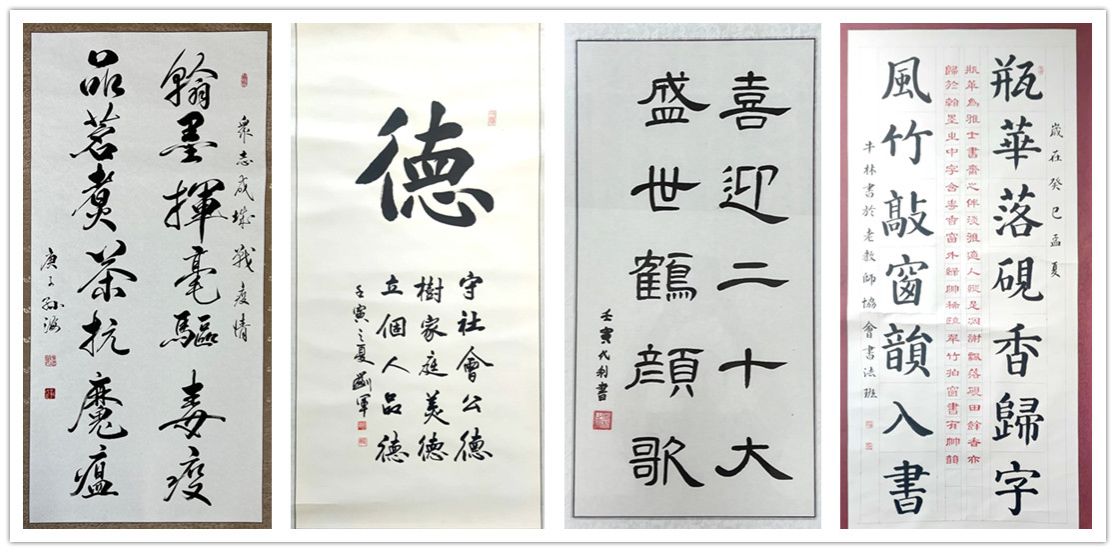 众志成城戰疫情
翰墨揮毫驅毒疫
品茗煮茶抗魔瘟
庚子孙海
德
守社會公德
樹家庭美德
立個人品德
壬寅之夏
喜迎二十大
盛世鶴顔歌
壬寅代利書
歲在癸巳孟夏
瓶華落硯香歸字
瓶華爲雅士書齋之伴淡雅適人縱是凋謝飄落硯田餘香亦
歸於翰墨也中字含書香窗外綠帥稀疏翠竹拍窗書有帥韻
風竹敲窗韻入書
牛林書於老教師協會書法班